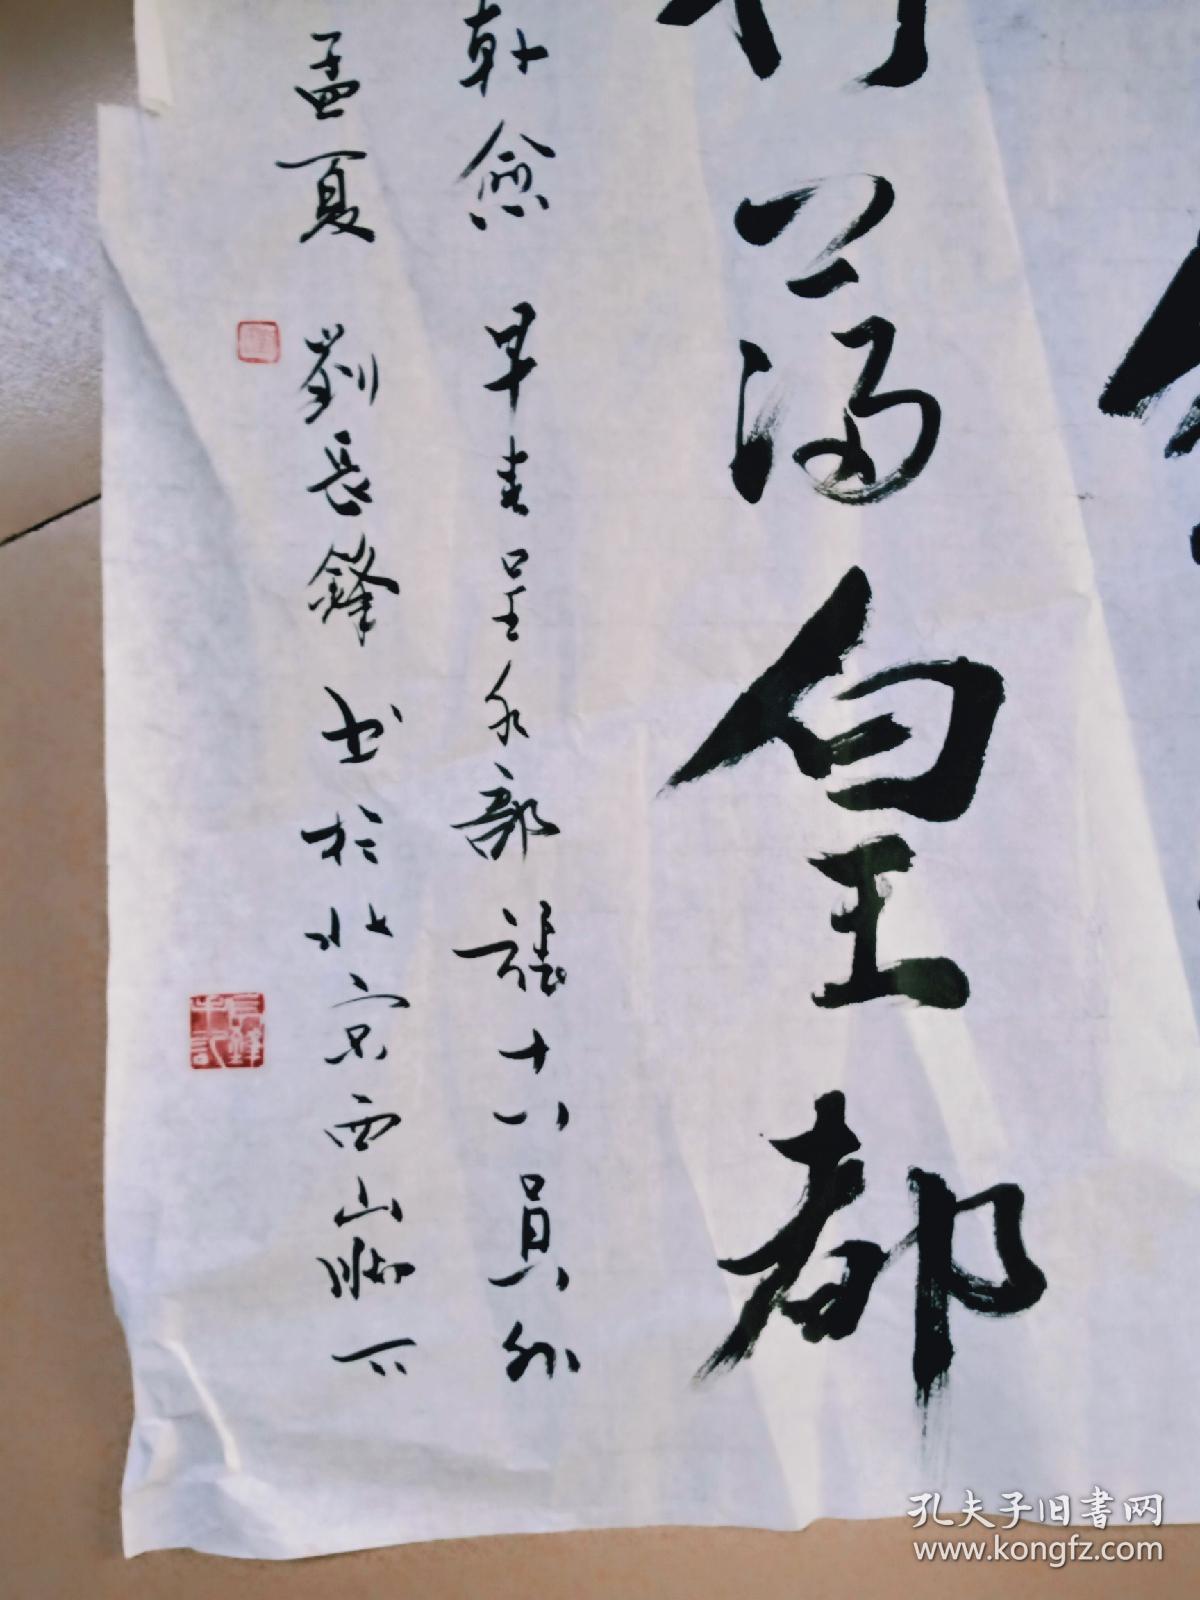 滿皇都
韩愈 早春呈水部張十八員外
孟夏 劉長鋒书於北京西山脚下
孔夫子旧書网
www.kongfz.com